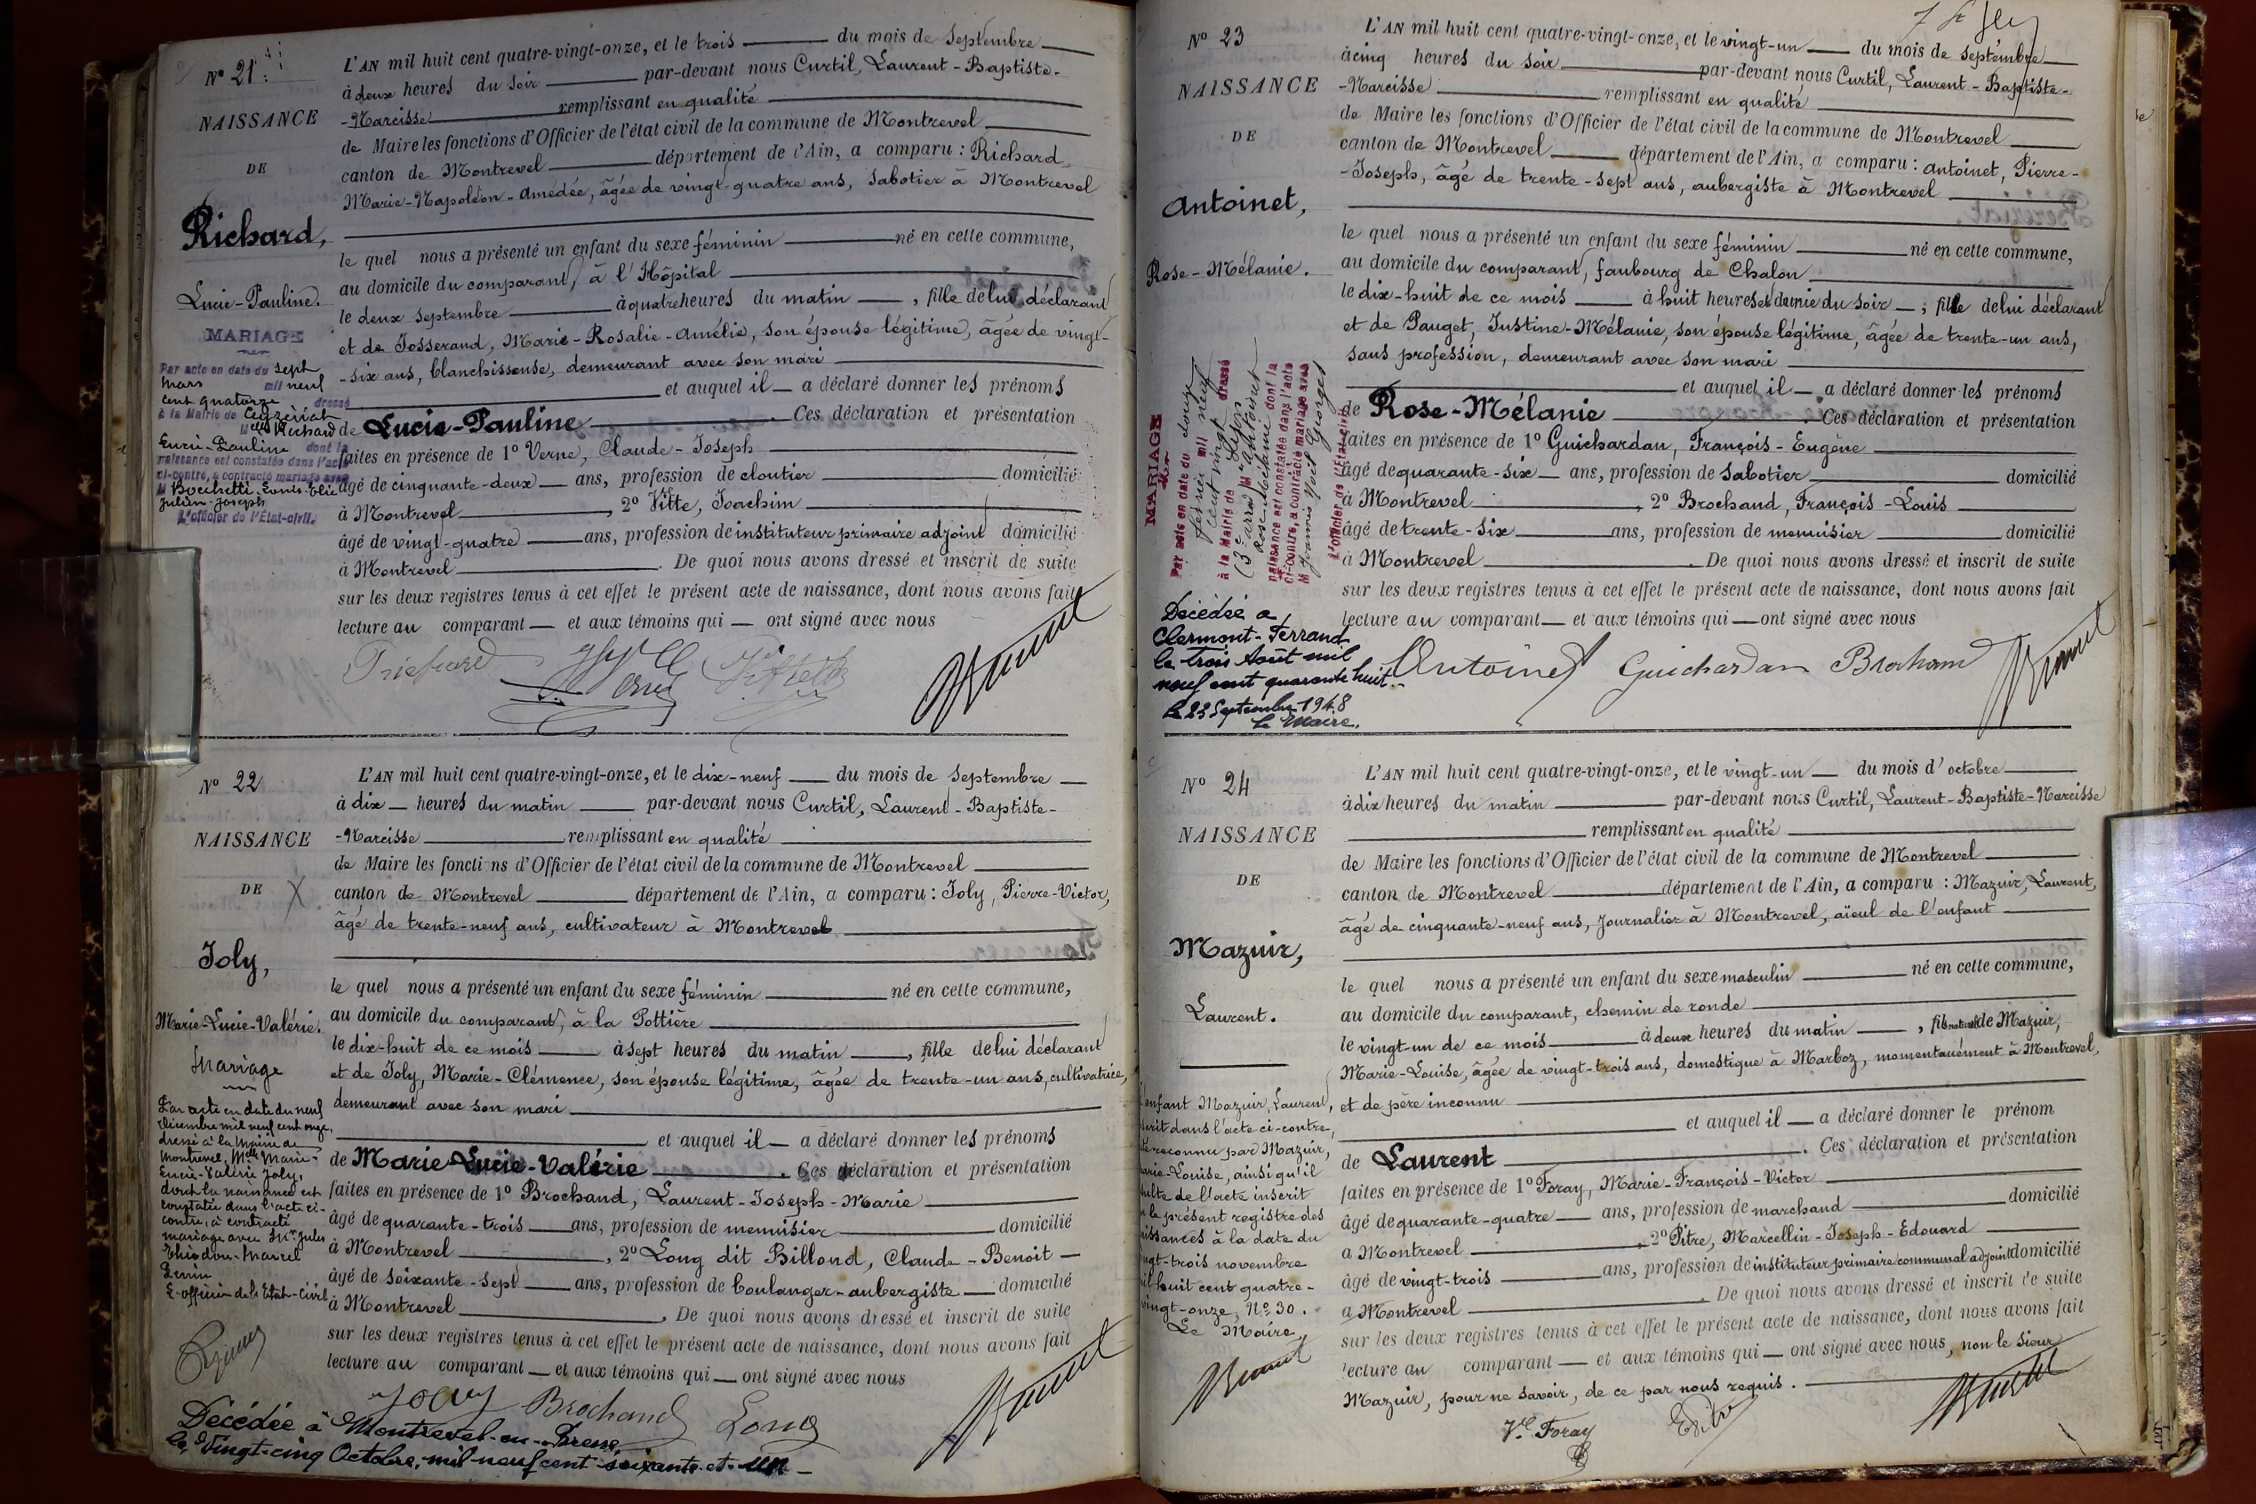 N° 21
NAISSANCE
DE
Richard,
Lucie-Pauline.
MARIAGE
Par acte en date du sept
mars mil neuf
cent quatorze dressé
à la Mairie de Ceyzériat
Melle Richard
Lucie-Pauline dont la
naissance est constatée dans l'acte
ci-contre, a contracté mariage avec
M Bocchetti, Louis-Elie
Julien-Joseph
L'officier de l'État-civil.
L'AN mil huit cent quatre-vingt-onze, et le trois du mois de Septembre
à deux heures du soir par-devant nous Curtil, Laurent-Baptiste-
-Narcisse remplissant en qualité
de Maire les fonctions d'Officier de l'état civil de la commune de Montrevel
canton de Montrevel département de l'Ain, a comparu : Richard
Marie-Napoléon-Amedée, âgée de vingt-quatre ans, sabotier à Montrevel
le quel nous a présenté un enfant du sexe féminin né en cette commune,
au domicile du comparant, à l'Hôpital
le deux septembre à quatre heures du matin , fille de lui déclarant
et de Josserand, Marie-Rosalie-Amélie, son épouse légitime, âgée de vingt-
-six ans, blanchisseuse, demeurant avec son mari
et auquel il a déclaré donner les prénoms
de Lucie-Pauline . Ces déclaration et présentation
faites en présence de 1° Verne, Claude-Joseph
âgé de cinquante-deux ans, profession de cloutier domicilié
à Montrevel , 2° Vitte, Joachim
âgé de vingt-quatre ans, profession de instituteur primaire adjoint domicilié
à Montrevel . De quoi nous avons dressé et inscrit de suite
sur les deux registres tenus à cet effet le présent acte de naissance, dont nous avons fait
lecture au comparant et aux témoins qui ont signé avec nous
N° 22
NAISSANCE
DE X
Joly,
Marie-Lucie-Valérie.
Mariage
Par acte en date du neuf
décembre mil neuf cent onze,
dressé à la Mairie de
Montrevel, Melle Marie-
Lucie-Valérie Joly,
dont la naissance est
constatée dans l'acte ci-
contre, a contracté
mariage avec Mr Jules
Théodore-Marcel
L'officier de l'Etat-Civil
L'AN mil huit cent quatre-vingt-onze, et le dix-neuf du mois de septembre
à dix heures du matin par-devant nous Curtil, Laurent-Baptiste-
-Narcisse remplissant en qualité
de Maire les fonctions d'Officier de l'état civil de la commune de Montrevel
canton de Montrevel département de l'Ain, a comparu : Joly, Pierre-Victor,
âgé de trente-neuf ans, cultivateur à Montrevel
le quel nous a présenté un enfant du sexe féminin né en cette commune,
au domicile du comparant, à la Pottière
le dix-huit de ce mois à sept heures du matin , fille de lui déclarant
et de Joly, Marie-Clémence, son épouse légitime, âgée de trente-un ans, cultivatrice,
demeurant avec son mari
et auquel il a déclaré donner les prénoms
de Marie-Lucie-Valérie . Ces déclaration et présentation
faites en présence de 1° Brochand, Laurent-Joseph-Marie
âgé de quarante-trois ans, profession de menuisier domicilié
à Montrevel , 2° Long dit Billoud, Claude-Benoit
âgé de soixante-sept ans, profession de boulanger-aubergiste domicilié
à Montrevel . De quoi nous avons dressé et inscrit de suite
sur les deux registres tenus à cet effet le présent acte de naissance, dont nous avons fait
lecture au comparant et aux témoins qui ont signé avec nous
Joly Brochand Long
Décédée à Montrevel-en-Bresse
le vingt-cinq Octobre, mil neuf cent soixante et un
N° 23
NAISSANCE
DE
Antoinet,
Rose-Mélanie.
MARIAGE
Par acte en date du douze
février mil neuf
cent vingt dressé
à la Mairie de Lyon
(3e arrdt) Melle Antoinet
Rose-Mélanie dont la
naissance est constatée dans l'acte
ci-contre, a contracté mariage avec
M Joannis Noël Georges
L'officier de l'État-civil
Décédée à
Clermont-Ferrand
le trois Août mil
neuf cent quarante huit
le 23 Septembre 1948
Le Maire.
L'AN mil huit cent quatre-vingt-onze, et le vingt-un du mois de septembre
à cinq heures du soir par-devant nous Curtil, Laurent-Baptiste-
-Narcisse remplissant en qualité
de Maire les fonctions d'Officier de l'état civil de la commune de Montrevel
canton de Montrevel département de l'Ain, a comparu : Antoinet, Pierre-
-Joseph, âgé de trente-sept ans, aubergiste à Montrevel
le quel nous a présenté un enfant du sexe féminin né en cette commune,
au domicile du comparant, faubourg de Chalon
le dix-huit de ce mois à huit heures et demie du soir , fille de lui déclarant
et de Pauget, Justine-Mélanie, son épouse légitime, âgée de trente-un ans,
sans profession, demeurant avec son mari
et auquel il a déclaré donner les prénoms
de Rose-Mélanie . Ces déclaration et présentation
faites en présence de 1° Guichardan, François-Eugène
âgé de quarante-six ans, profession de Sabotier domicilié
à Montrevel , 2° Brochand, François-Louis
âgé de trente-six ans, profession de menuisier domicilié
à Montrevel . De quoi nous avons dressé et inscrit de suite
sur les deux registres tenus à cet effet le présent acte de naissance, dont nous avons fait
lecture au comparant et aux témoins qui ont signé avec nous
Antoinet Guichardan Brochand
N° 24
NAISSANCE
DE
Mazuir,
Laurent.
enfant Mazuir, Laurent,
dans l'acte ci-contre,
reconnu par Mazuir,
Marie-Louise, ainsi qu'il
de l'acte inscrit
le présent registre des
naissances à la date du
vingt-trois novembre
mil huit cent quatre-
vingt-onze, N° 30.
Le Maire,
L'AN mil huit cent quatre-vingt-onze, et le vingt-un du mois d'octobre
à dix heures du matin par-devant nous Curtil, Laurent-Baptiste-Narcisse
remplissant en qualité
de Maire les fonctions d'Officier de l'état civil de la commune de Montrevel
canton de Montrevel département de l'Ain, a comparu : Mazuir, Laurent,
âgé de cinquante-neuf ans, journalier à Montrevel, aïeul de l'enfant
le quel nous a présenté un enfant du sexe masculin né en cette commune,
au domicile du comparant, chemin de ronde
le vingt-un de ce mois à deux heures du matin , fils naturel de Mazuir,
Marie-Louise, âgée de vingt-trois ans, domestique à Marboz, momentanément à Montrevel,
et de père inconnu
et auquel il a déclaré donner le prénom
de Laurent . Ces déclaration et présentation
faites en présence de 1° Foray, Marie-François-Victor
âgé de quarante-quatre ans, profession de marchand domicilié
à Montrevel , 2° Pitre, Marcellin-Joseph-Edouard
âgé de vingt-trois ans, profession de instituteur primaire communal adjoint domicilié
à Montrevel . De quoi nous avons dressé et inscrit de suite
sur les deux registres tenus à cet effet le présent acte de naissance, dont nous avons fait
lecture au comparant et aux témoins qui ont signé avec nous, non le sieur
Mazuir, pour ne savoir, de ce par nous requis.
Vr Foray EPitre